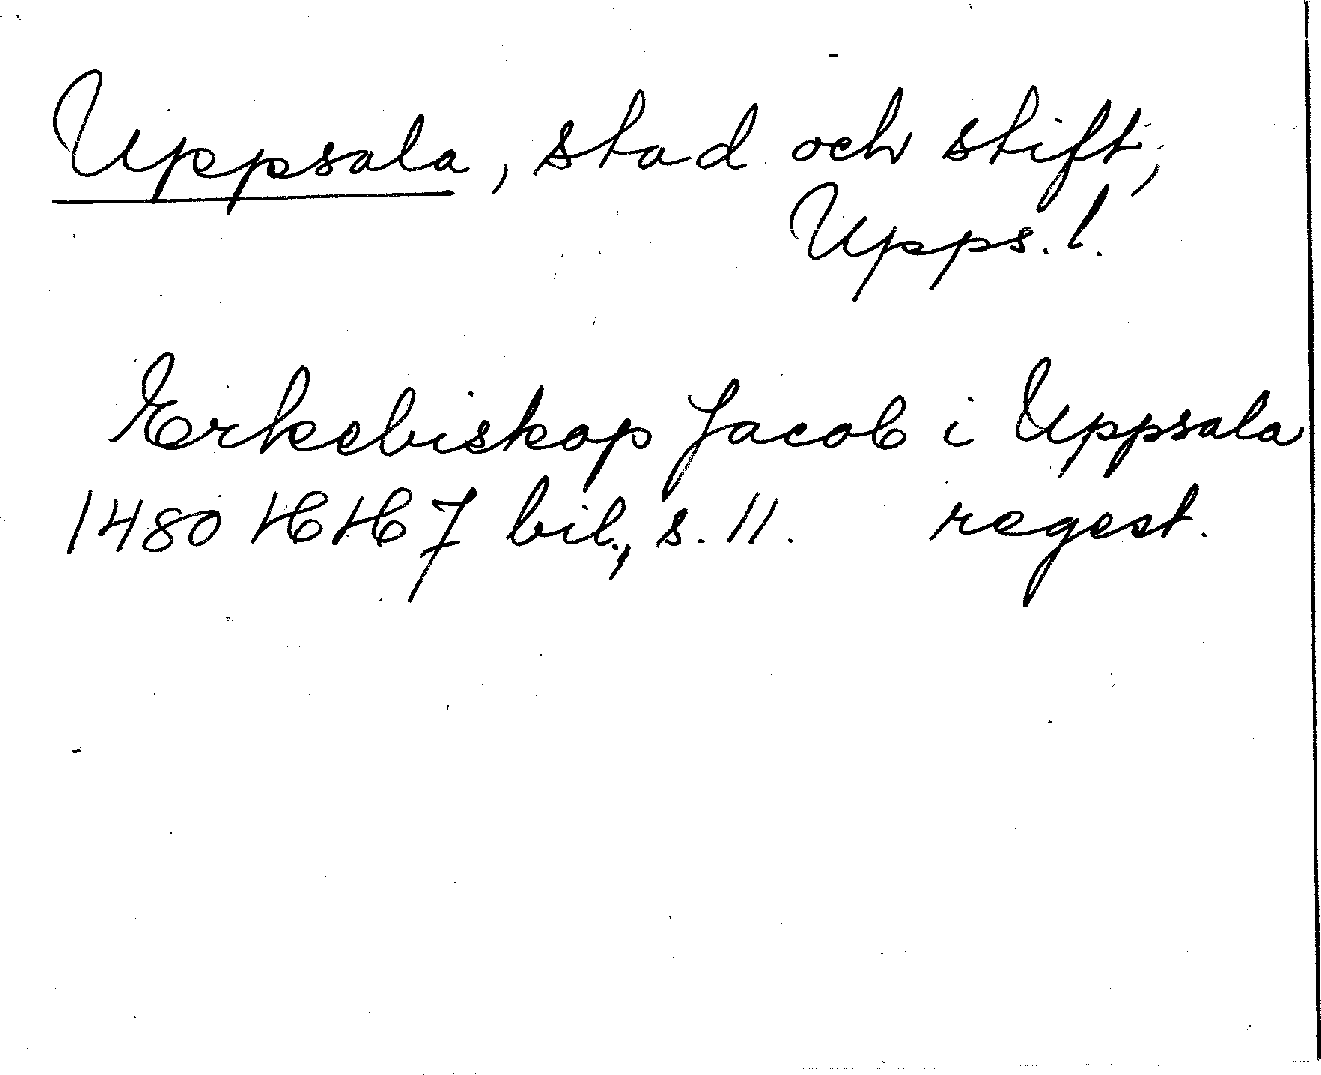 Uppsala, stad och stift,
Upps. l.
Erkebiskop Jacob i Uppsala
1480 HH 7 bil., s. 11. regest.